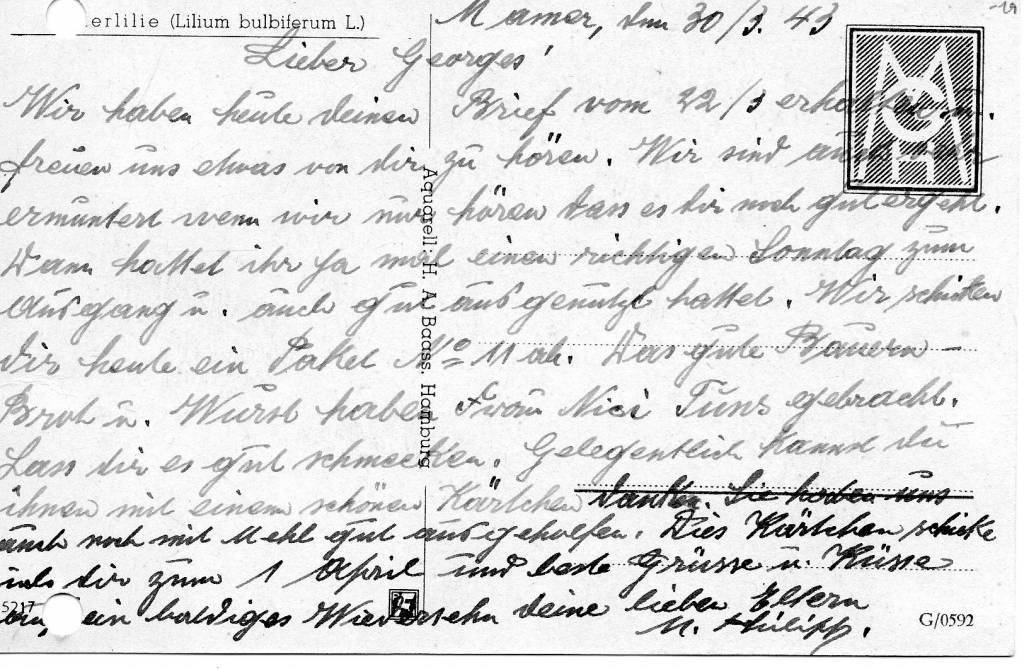 erlilie (Lilium bulbiferum L.)
Mamer, den 30/3. 43
Lieber Georges!
Wir haben heute deinen Brief vom 22/3 erhalten u.
freuen uns etwas von dir zu hören. Wir sind
ermuntert wenn wir nur hören dass es dir noch gut ergeht.
Dann hattet ihr ja mal einen richtigen Sonntag zum
Ausgang u. auch gut ausgenutzt hattet. Wir schicken
dir heute ein Paket No 11 ab. Das gute Bauern-
Brot u. Wurst haben Frau Nici Tuns gebracht.
Lass dir es gut schmecken. Gelegentlich kannst du
ihnen mit einem schönen Kärtchen danken. Sie haben uns
auch noch mit Mehl gut ausgeholfen. Dies Kärtchen schicke
dir zum 1 April und beste Grüsse u. Küsse
ein baldiges Wiedersehn deine lieben Eltern
M. Philipp.
Aquarell: H. A. Baass, Hamburg
5217
G/0592